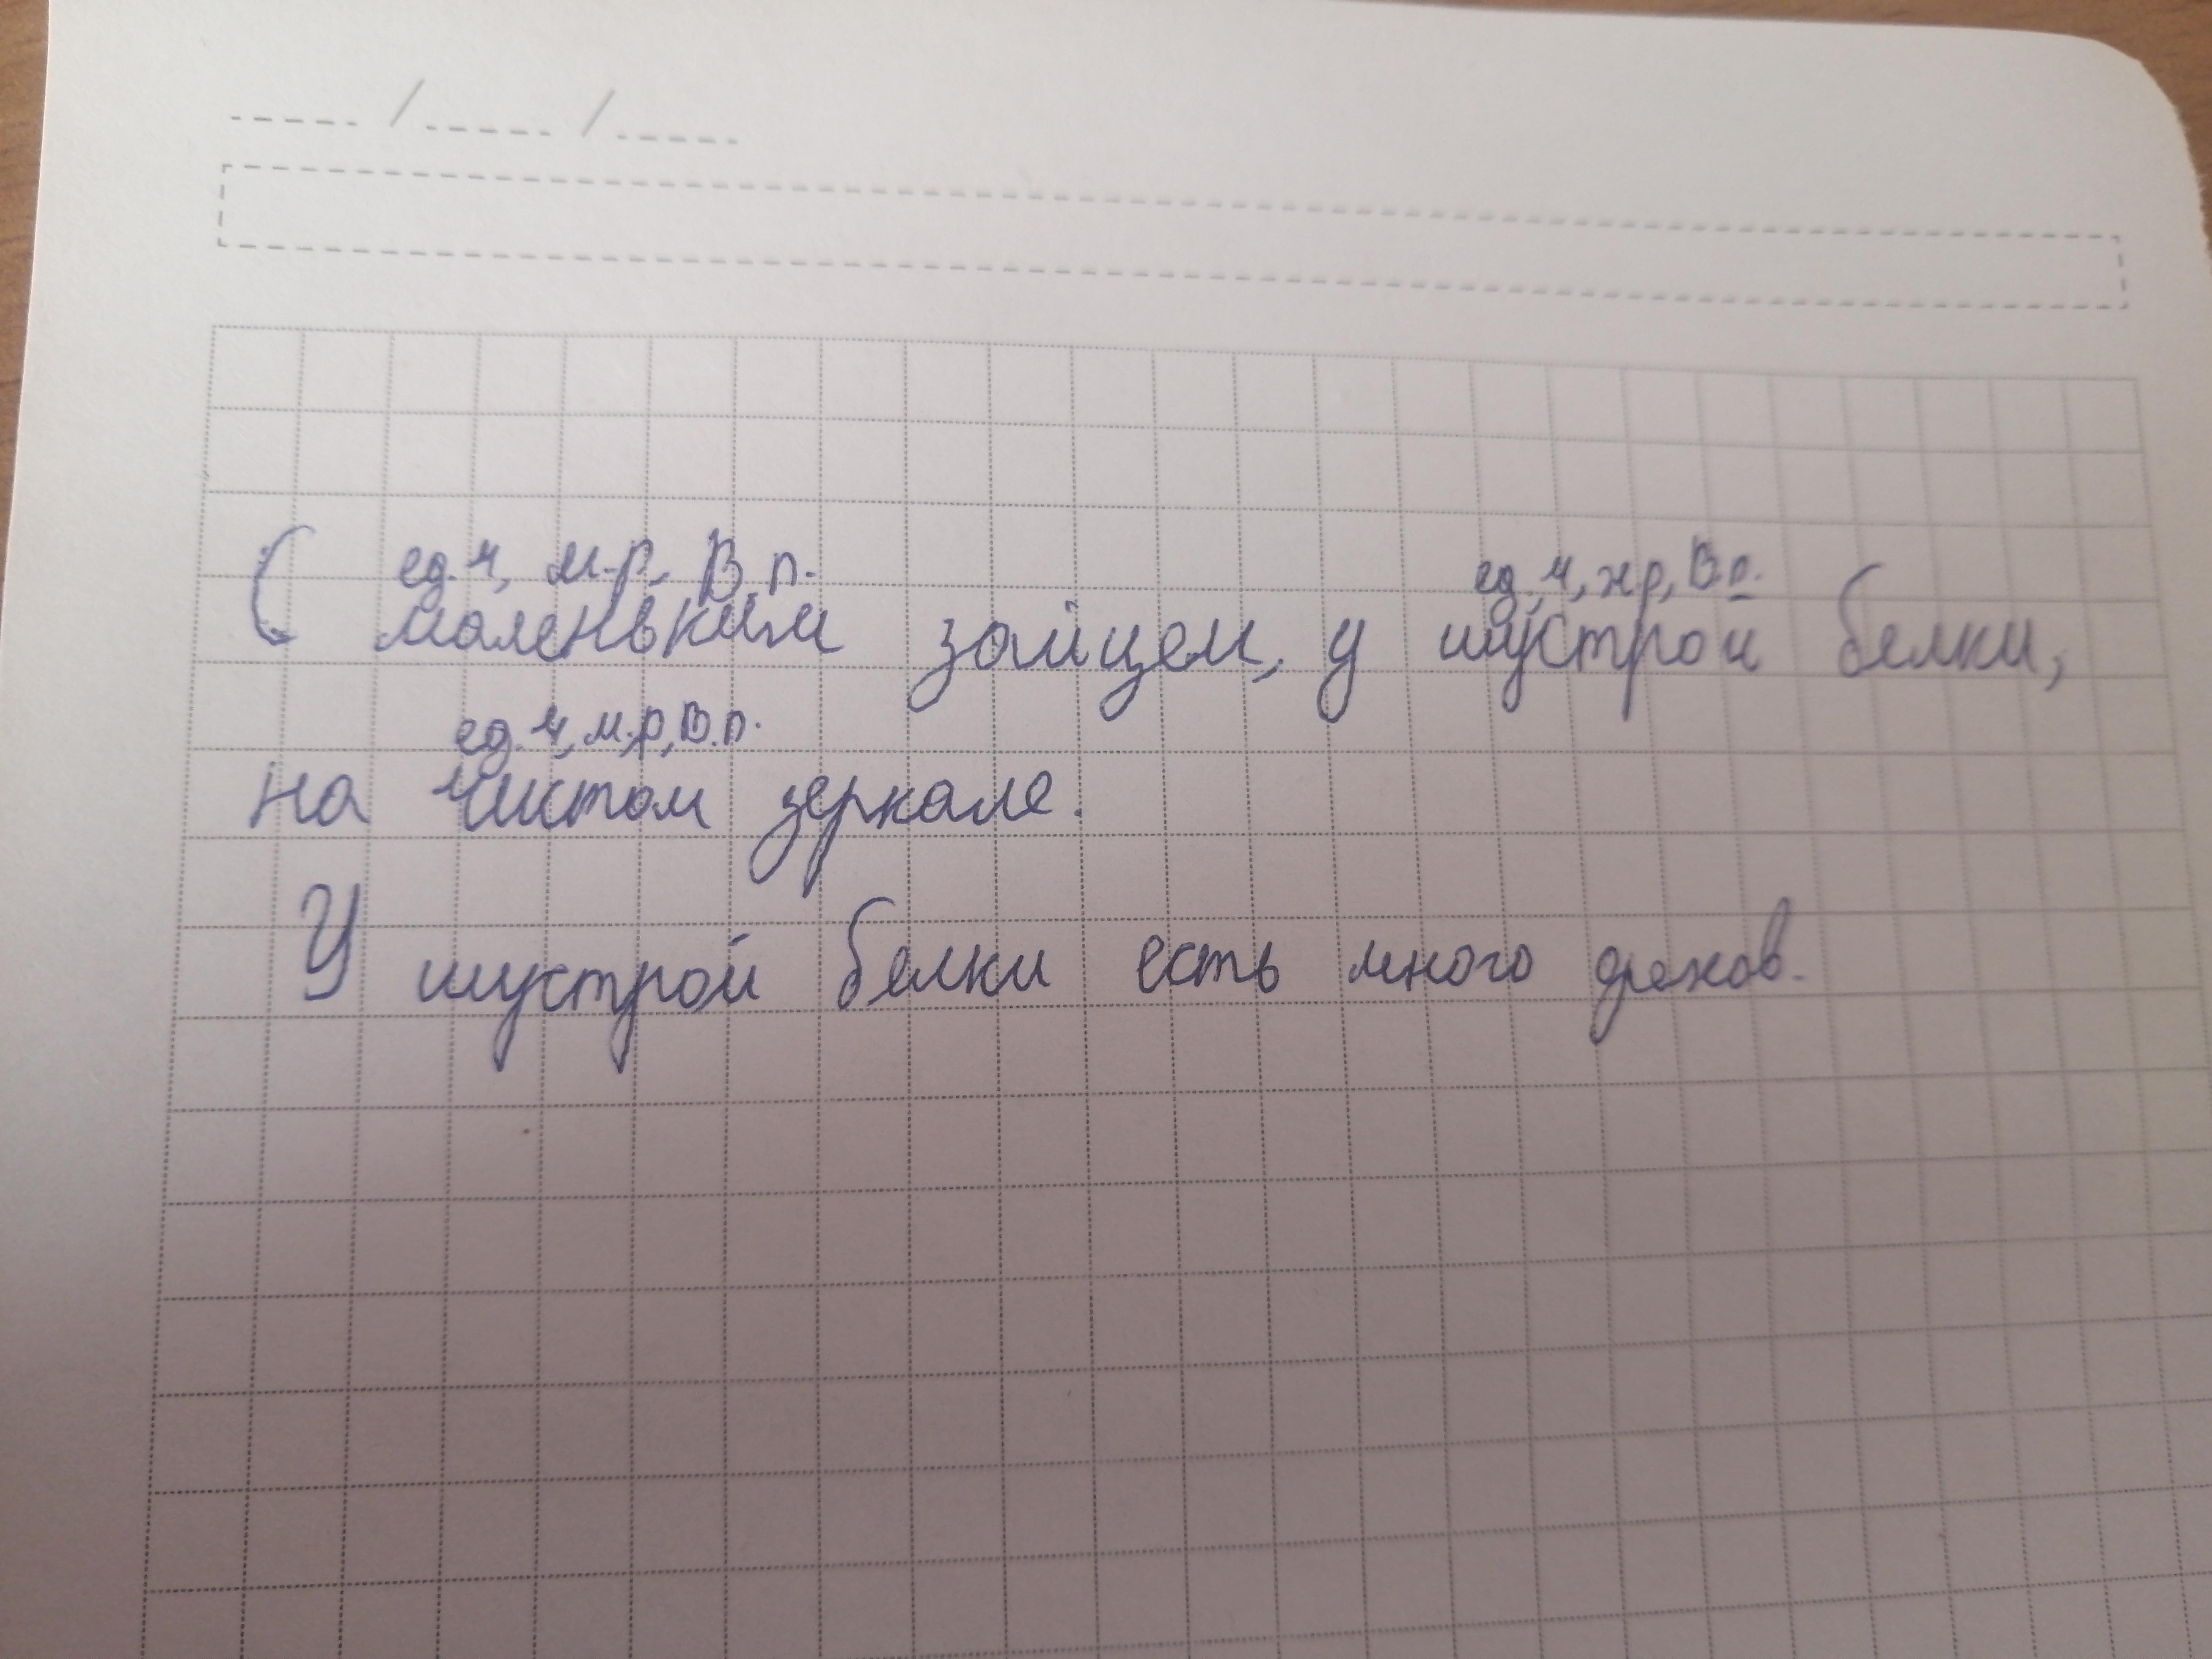 ед.ч, м.р, В.п.
ед.ч, ж.р, В.п.
С маленьким зайцем, у шустрой белки,
ед.ч, м.р, В.п.
на чистом зеркале.
У шустрой белки есть много орехов.